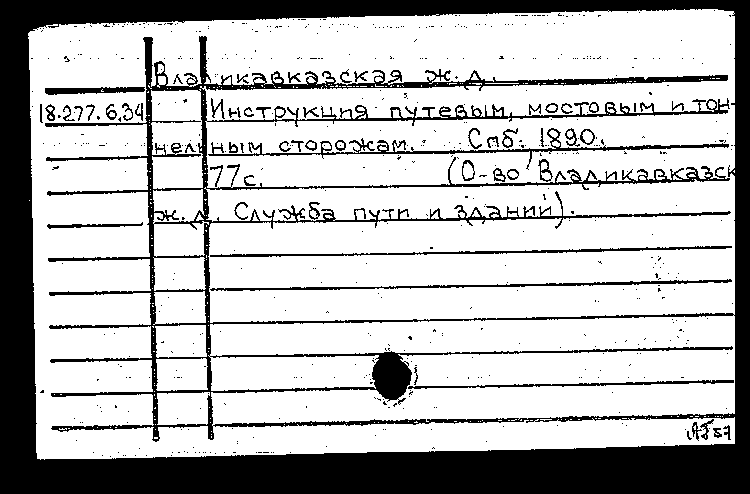 Владикавказская ж.д.
18.277.6.34 Инструкция путевым, мостовым и тон-
нельным сторожам. Спб. 1890.
77с. (О-во Владикавказск
ж.д. Служба пути и зданий).